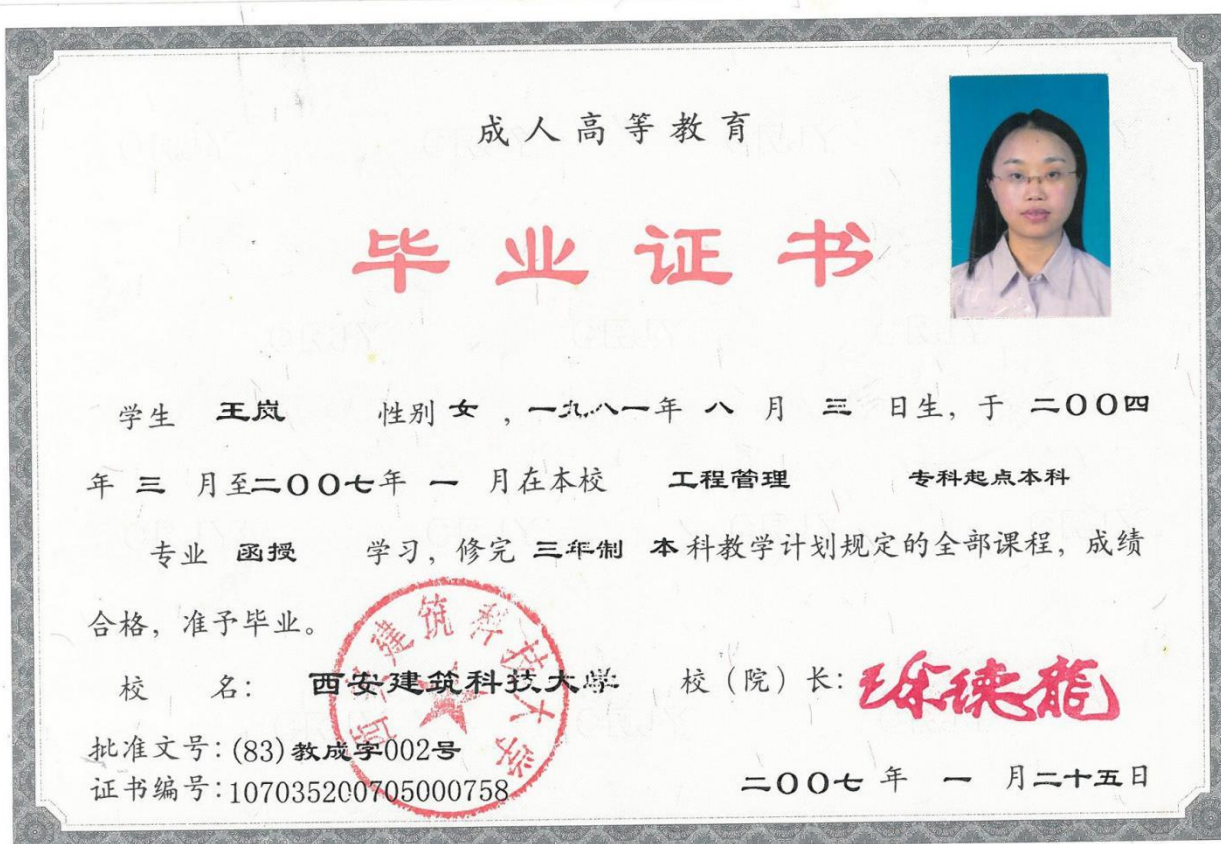 成人高等教育
毕业证书
学生 王岚 性别 女 , 一九八一年 八 月 三 日生, 于 二〇〇四
年 三 月至二〇〇七年 一 月在本校 工程管理 专科起点本科
专业 函授 学习, 修完 三年制 本科教学计划规定的全部课程, 成绩
合格, 准予毕业。
校 名: 西安建筑科技大学 校(院)长:
西安建筑科技大学
批准文号: (83)教成字002号
证书编号: 107035200705000758
二〇〇七 年 一 月二十五日